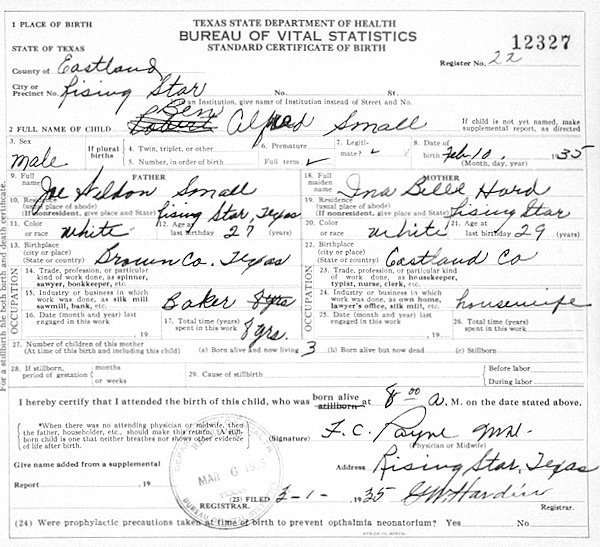 1 PLACE OF BIRTH
TEXAS STATE DEPARTMENT OF HEALTH
BUREAU OF VITAL STATISTICS
STANDARD CERTIFICATE OF BIRTH
12327
STATE OF TEXAS
Register No. 22
County of Eastland
City or Precinct No. Rising Star No. St.
If an Institution, give name of Institution instead of Street and No.
2 FULL NAME OF CHILD Ben Robert Alfred Small
If child is not yet named, make supplemental report, as directed
3. Sex male
If plural births
4. Twin, triplet, or other
5. Number, in order of birth
6. Premature
Full term ✓
7. Legitimate? ✓
8. Date of birth Feb. 10 1935
(Month, day, year)
9. Full name FATHER Joe Weldon Small
18. Full maiden name MOTHER Ina Belle Hord
10. Residence (usual place of abode) Rising Star, Texas
(If nonresident, give place and State)
19. Residence (usual place of abode) Rising Star
(If nonresident, give place and State)
11. Color or race white
12. Age at last birthday 27 (years)
20. Color or race white
21. Age at last birthday 29 (years)
13. Birthplace (city or place) (State or country) Brown Co. Texas
22. Birthplace (city or place) (State or country) Eastland Co
OCCUPATION
14. Trade, profession, or particular kind of work done, as spinner, sawyer, bookkeeper, etc.
15. Industry or business in which work was done, as silk mill, sawmill, bank, etc. Baker 8 yrs
16. Date (month and year) last engaged in this work , 19
17. Total time (years) spent in this work 8 yrs.
OCCUPATION
23. Trade, profession, or particular kind of work done, as housekeeper, typist, nurse, clerk, etc.
24. Industry or business in which work was done, as own home, lawyer's office, silk mill, etc. housewife
25. Date (month and year) last engaged in this work , 19
26. Total time (years) spent in this work
27. Number of children of this mother
(At time of this birth and including this child) (a) Born alive and now living 3 (b) Born alive but now dead (c) Stillborn
28. If stillborn, period of gestation months or weeks
29. Cause of stillbirth
Before labor
During labor
I hereby certify that I attended the birth of this child, who was born alive stillborn at 8 00 a. M. on the date stated above.
*When there was no attending physician or midwife, then the father, householder, etc., should make this return. A stillborn child is one that neither breathes nor shows other evidence of life after birth.
(Signature) F. C. Payne M.D.
(Physician or Midwife)
Give name added from a supplemental
Report , 19
REGISTRAR.
Address Rising Star, Texas
(23) FILED 3-1- , 1935 Registrar.
MAR 6
TEXAS
(24) Were prophylactic precautions taken at time of birth to prevent opthalmia neonatorium? Yes No
For a stillbirth file both birth and death certificate.